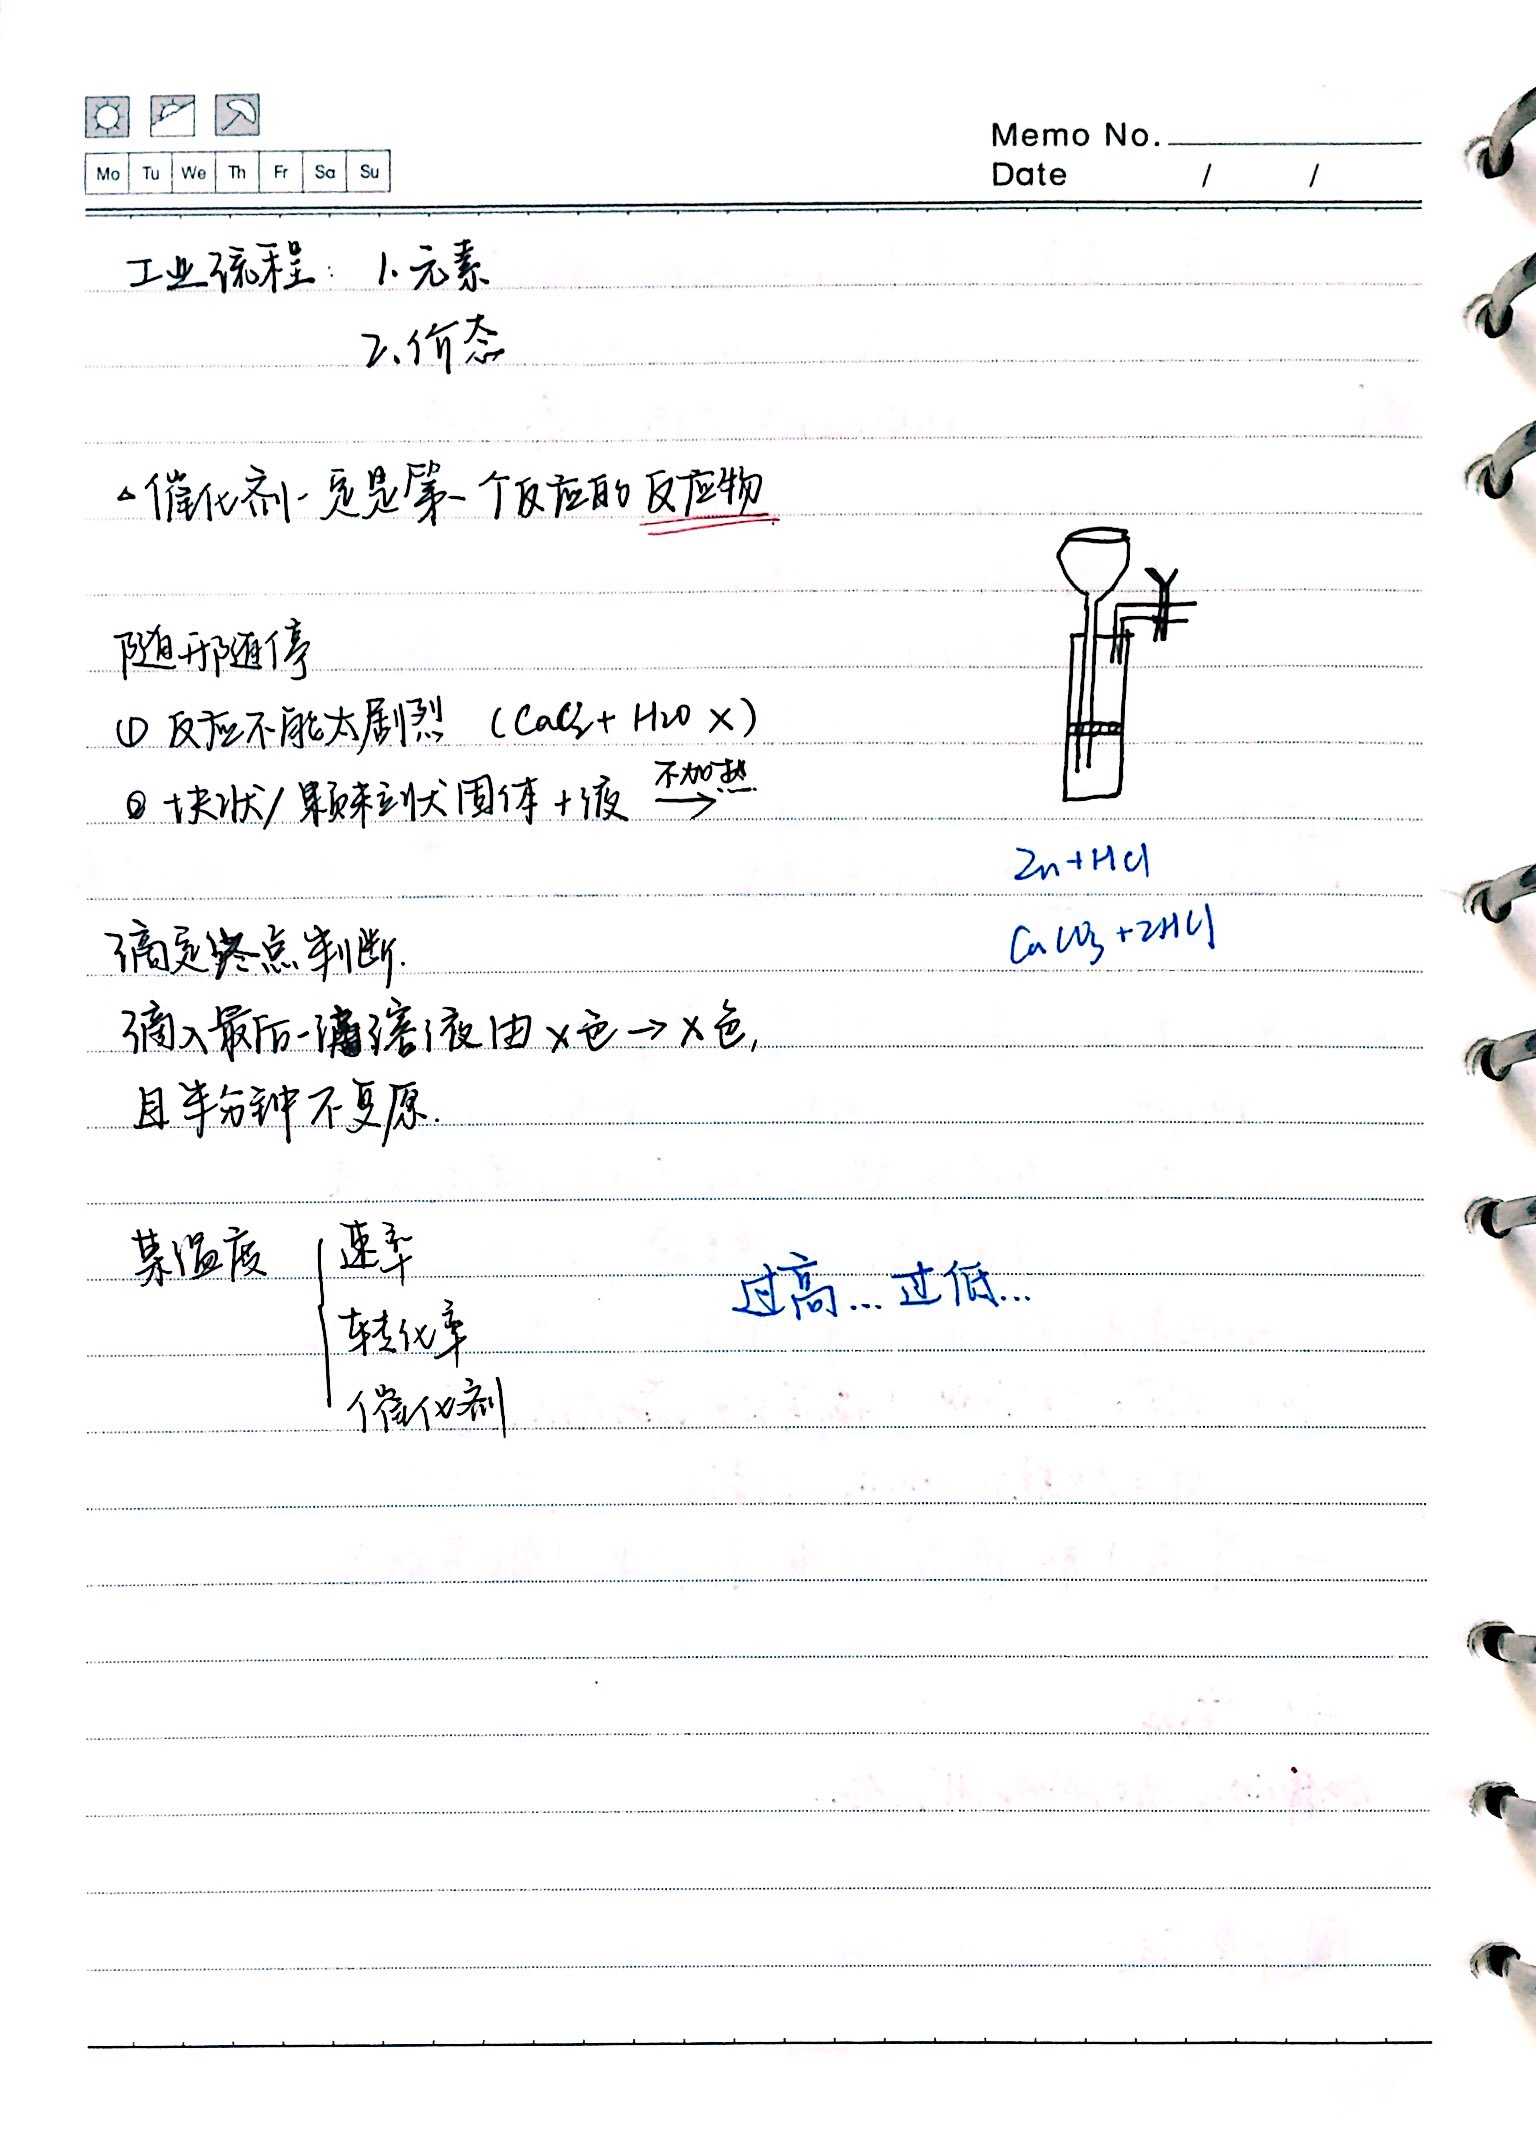 Mo Tu We Th Fr Sa Su
Memo No.
Date / /
工业流程: 1.元素
2.价态
△催化剂一定是第一个反应的反应物
随开随停
① 反应不能太剧烈 (CaC₂+H2O ×)
② 块状/颗粒状固体+液 不加热→
Zn+HCl
CaCO₃+2HCl
滴定终点判断.
滴入最后一滴溶液由×色→×色,
且半分钟不复原.
某温度 速率
转化率
催化剂
过高...过低...